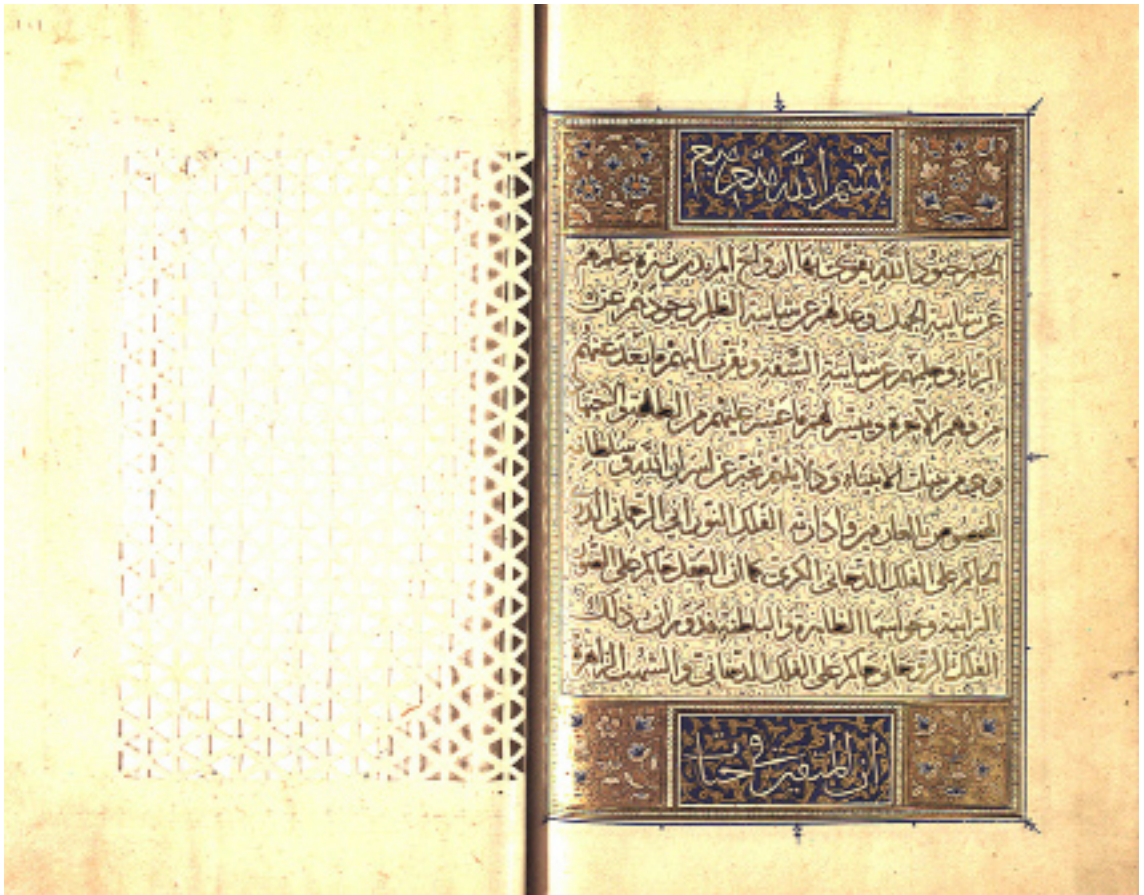 بسم الله الرحمن الرحيم
الحكم جنود الله يقوى بها ارواح المريدين ينزه علمهم
عن شايبة الجهل وعدلهم عن شايبة الظلم وجودهم عن
الرياء وحلمهم عن شايبة السفه ويقرب اليهم ما بعد عنهم
من فهم الآخرة وييسر لهم ما عسر عليهم من الطاعة والاجتها
وهي من بينات الانبياء ودلايلهم تخبر عن اسرار الله وسلطانه
المخصوص بالعارفين وادارته الفلك النوراني الرحماني الدر
الحاكم على الفلك الدخاني الكري كما ان العقل حاكم على الصور
الترابية وحواسها الظاهرة والباطنة فدوران ذلك
الفلك الروحاني حاكم على الفلك الدخاني والشهب الزاهرة
ان المتقين في جنات